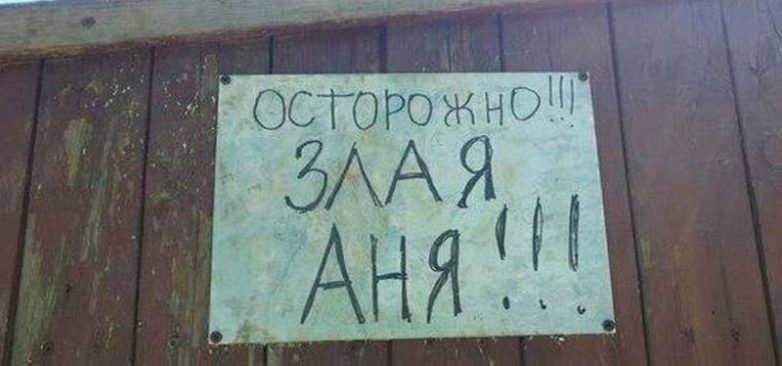 ОСТОРОЖНО!!!
ЗЛАЯ
АНЯ!!!